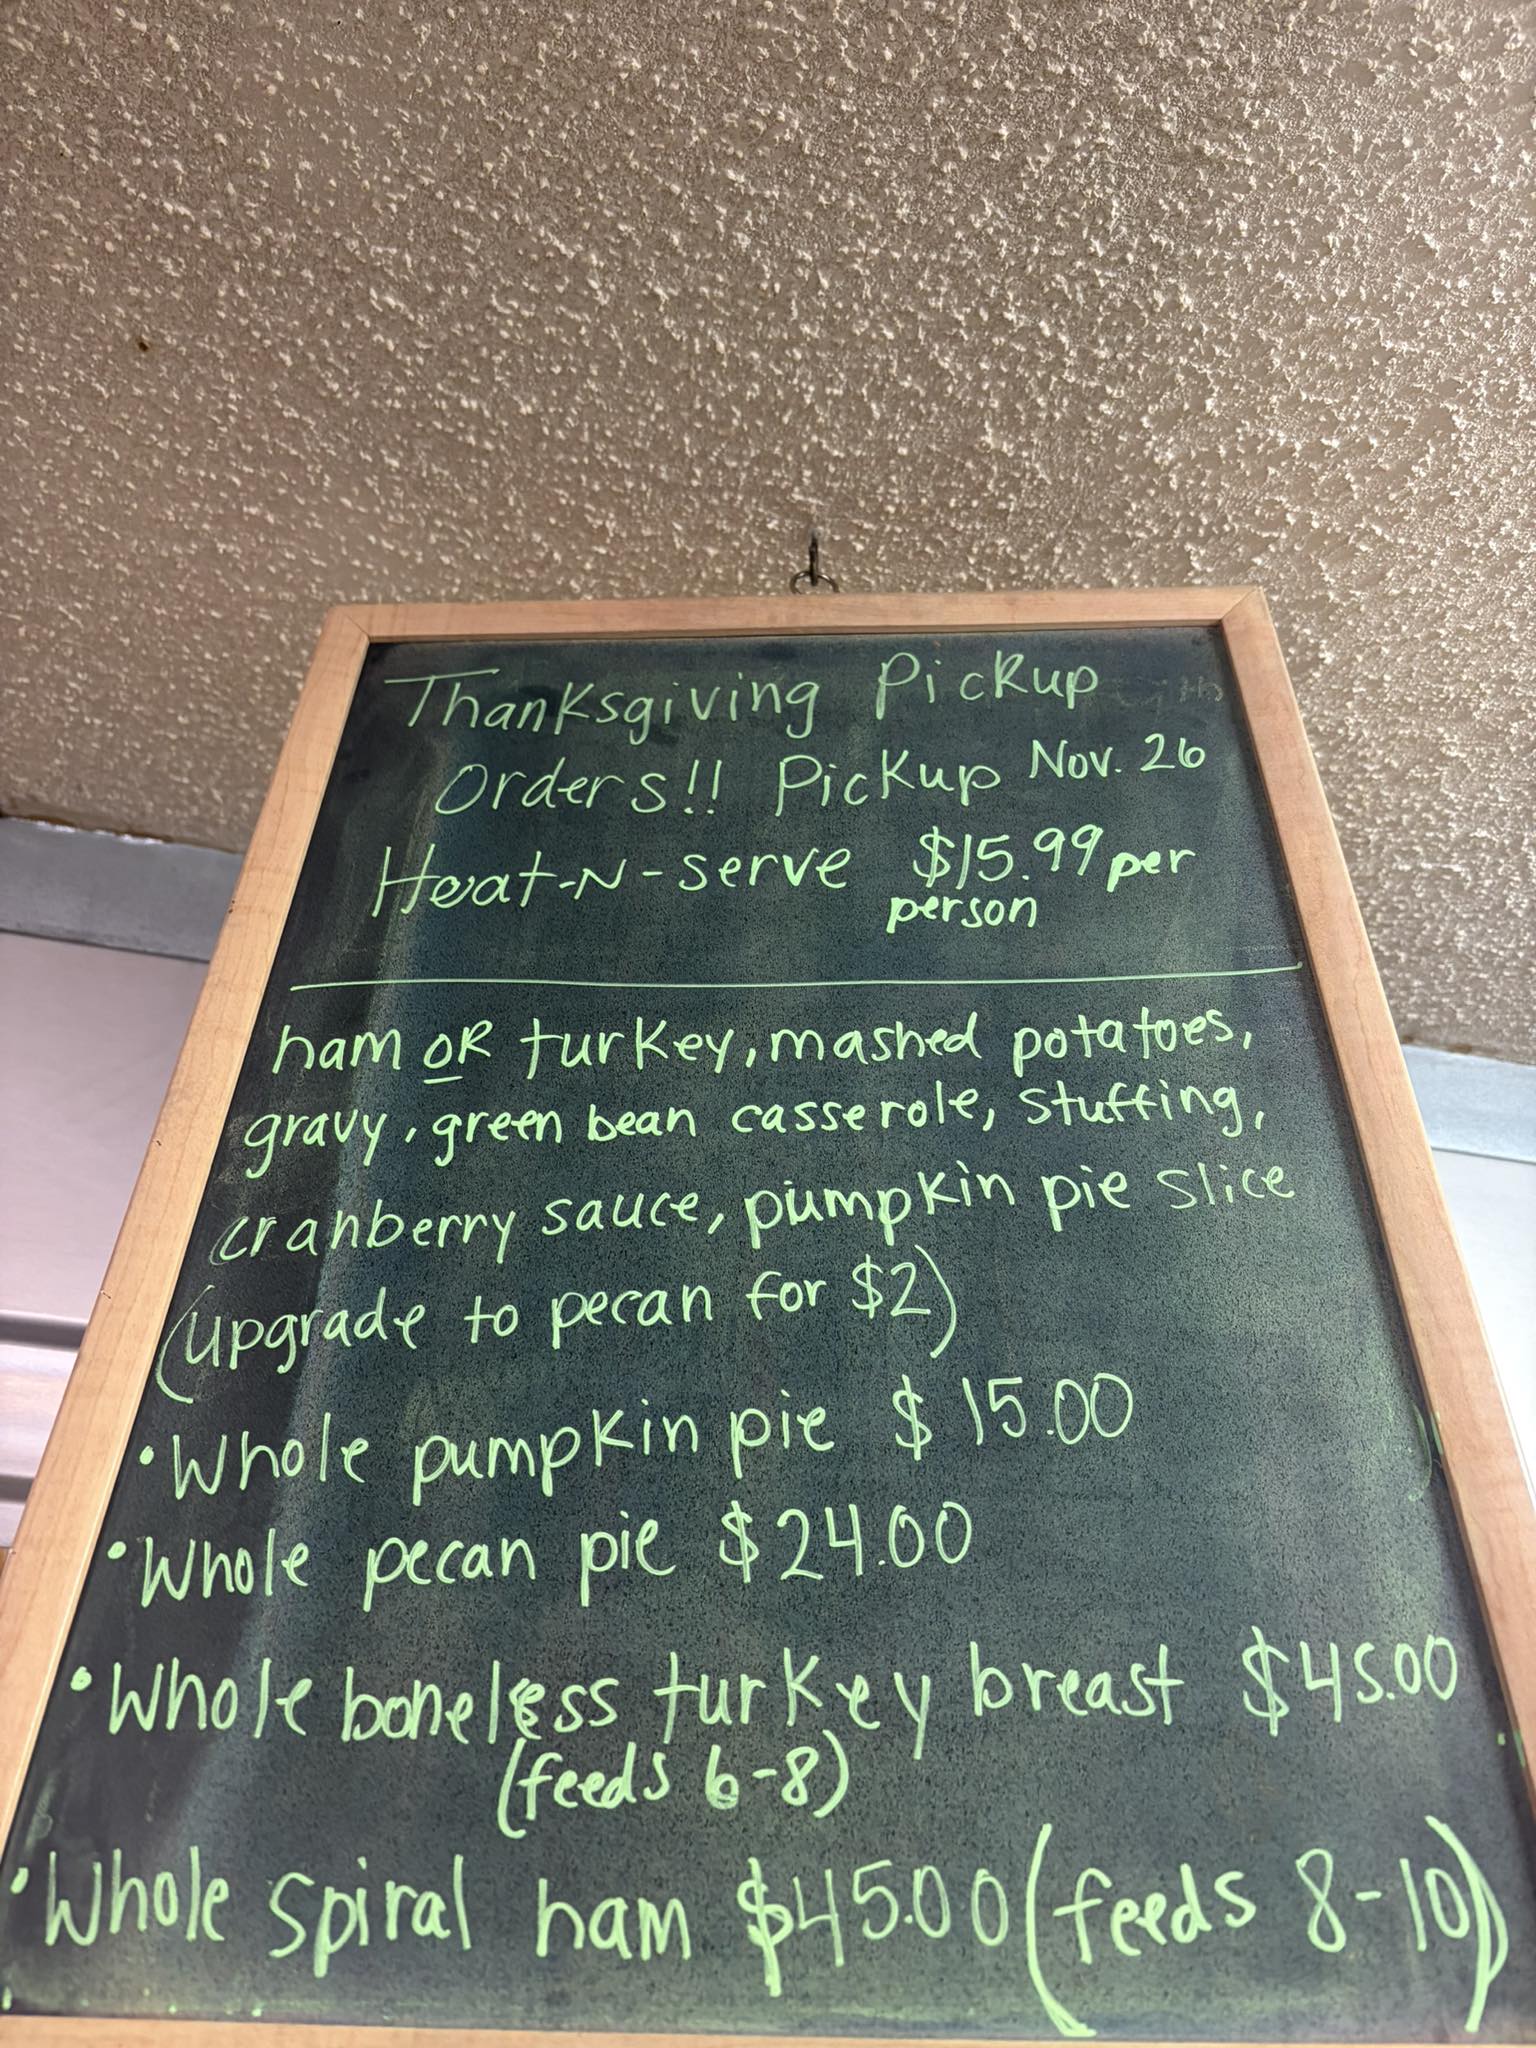 Thanksgiving Pickup
Orders!! Pickup Nov. 26
Heat-N-serve $15.99 per
person
ham OR turkey, mashed potatoes,
gravy, green bean casserole, stuffing,
cranberry sauce, pumpkin pie slice
(upgrade to pecan for $2)
• Whole pumpkin pie $15.00
• Whole pecan pie $24.00
• Whole boneless turkey breast $45.00
(feeds 6-8)
• Whole spiral ham $45.00 (feeds 8-10)